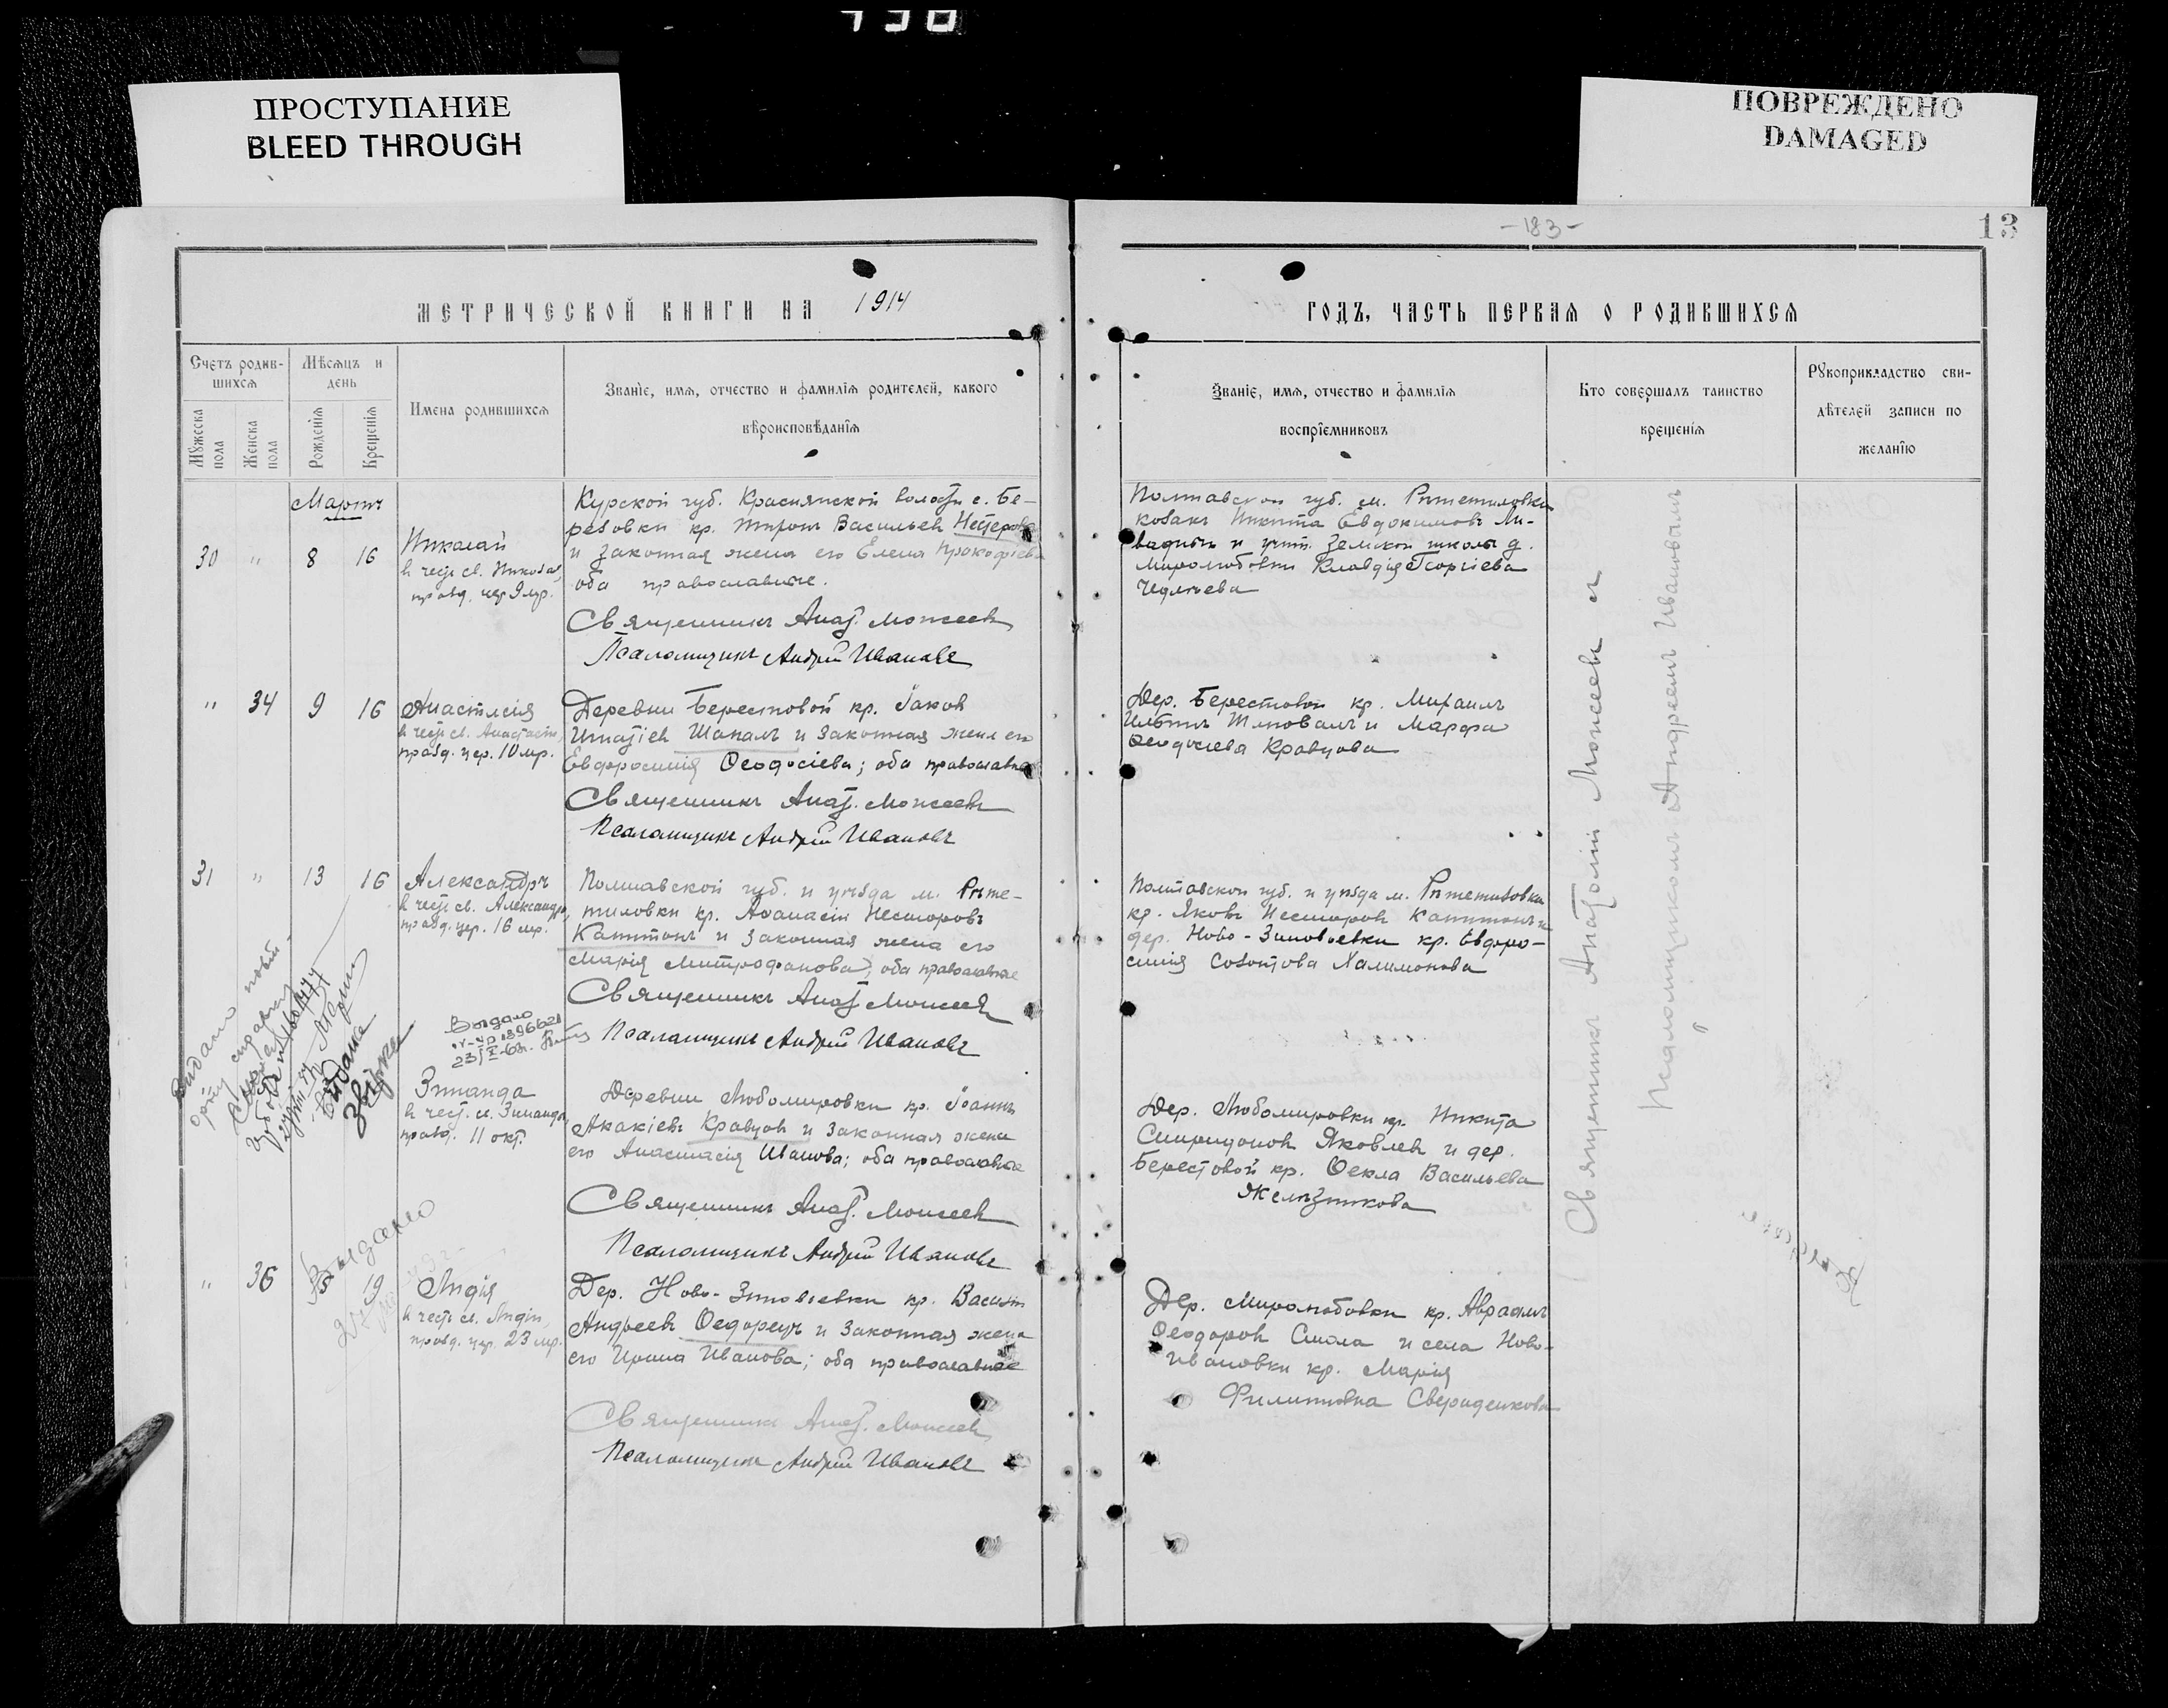 ПРОСТУПАНИЕ
BLEED THROUGH
ПОВРЕЖДЕНО
DAMAGED
-183-
13
МЕТРИЧЕСКОЙ КНИГИ НА 1914
ГОДЪ, ЧАСТЬ ПЕРВАЯ О РОДИВШИХСЯ
Счетъ родив-
шихся
Мужеска
пола
Женска
пола
Мѣсяцъ и
день
Рожденія
Крещенія
Имена родившихся
Званіе, имя, отчество и фамилія родителей, какого
вѣроисповѣданія
Званіе, имя, отчество и фамилія
воспріемниковъ
Кто совершалъ таинство
крещенія
Рукоприкладство сви-
дѣтелей записи по
желанію
Мартъ
30 " 8 16
Николай
в честь св. Николая,
празд. цер. 9 мр.
Курской губ. Краснянской волости с. Бе-
резовки кр. Васильев Нестеровъ
и законная жена его Елена Прокофіева
оба православные.
Священникъ Анат. Моисеевъ
Псаломщикъ Андрей Ивановъ
Полтавской губ. м. Рѣшетиловки
козакъ Никита Евдокимовъ Ли-
вадный и учит. земской школы д.
Миролюбовки Клавдія Георгіева
" 34 9 16
Анастасія
в честь св. Анастасіи,
празд. цер. 10 мр.
Деревни Берестовой кр. Іаковъ
Игнатіевъ Шапалъ и законная жена его
Евфросинія Ѳеодосіева; оба православные
Священникъ Анат. Моисеевъ
Псаломщикъ Андрей Ивановъ
Дер. Берестовой кр. Михаилъ
и Марфа
Ѳеодосіева Кравцова
31 " 13 16
Александръ
в честь св. Александра,
празд. цер. 16 мр.
Полтавской губ. и уѣзда м. Рѣше-
тиловки кр. Аѳанасій Несторовъ
Капитонъ и законная жена его
Марія Митрофанова; оба православные
Священникъ Анат. Моисеевъ
Псаломщикъ Андрей Ивановъ
Полтавской губ. и уѣзда м. Рѣшетиловки
кр. Яковъ Несторовъ Капитонъ и
дер. Ново-Зиновьевки кр. Евфро-
синія Созонтова Халимонова
Выдано
Видана
Звірка
Зинаида
в честь св. Зинаиды,
празд. 11 окт.
Деревни Любомировки кр. Іоаннъ
Акакіевъ Кравцовъ и законная жена
его Анастасія Иванова; оба православные
Священникъ Анат. Моисеевъ
Псаломщикъ Андрей Ивановъ
Дер. Любомировки кр. Никита
Спиридоновъ Яковлевъ и дер.
Берестовой кр. Ѳекла Васильева
Желѣзникова
Выдано
" 36 19
Лидія
в честь св. Лидіи,
празд. цер. 23 мр.
Дер. Ново-Зиновьевки кр. Василій
Андреевъ Ѳедорецъ и законная жена
его Ирина Иванова; оба православные
Священникъ Анат. Моисеевъ
Псаломщикъ Андрей Ивановъ
Дер. Миролюбовки кр. Авраамъ
Ѳеодоровъ Смола и села Ново-
Ивановки кр. Марія
Филиповна Свериденкова
Священникъ Анатолій Моисеевъ съ
Псаломщикомъ Андреемъ Ивановымъ